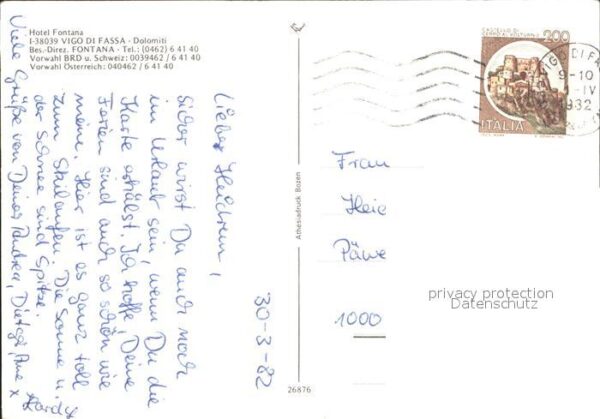 Hotel Fontana
I-38039 VIGO DI FASSA - Dolomiti
Bes.-Direz. FONTANA - Tel.: (0462) 6 41 40
Vorwahl BRD u. Schweiz: 0039462 / 6 41 40
Vorwahl Österreich: 040462 / 6 41 40
30-3-82
Lieber
sicher wirst Du auch noch
im Urlaub sein, wenn Du die
Karte erhälst. Ich hoffe Deine
Ferien sind auch so schön wie
meine. Hier ist es ganz toll
zum Skilaufen. Die Sonne u.
der Schnee sind Spitze.
Viele Grüße von Deiner Andrea,
Athesiadruck Bozen
26876
CASTELLO DI
200
ITALIA
VIGO DI FA
9-10
-IV
Frau
1000
privacy protection
Datenschutz